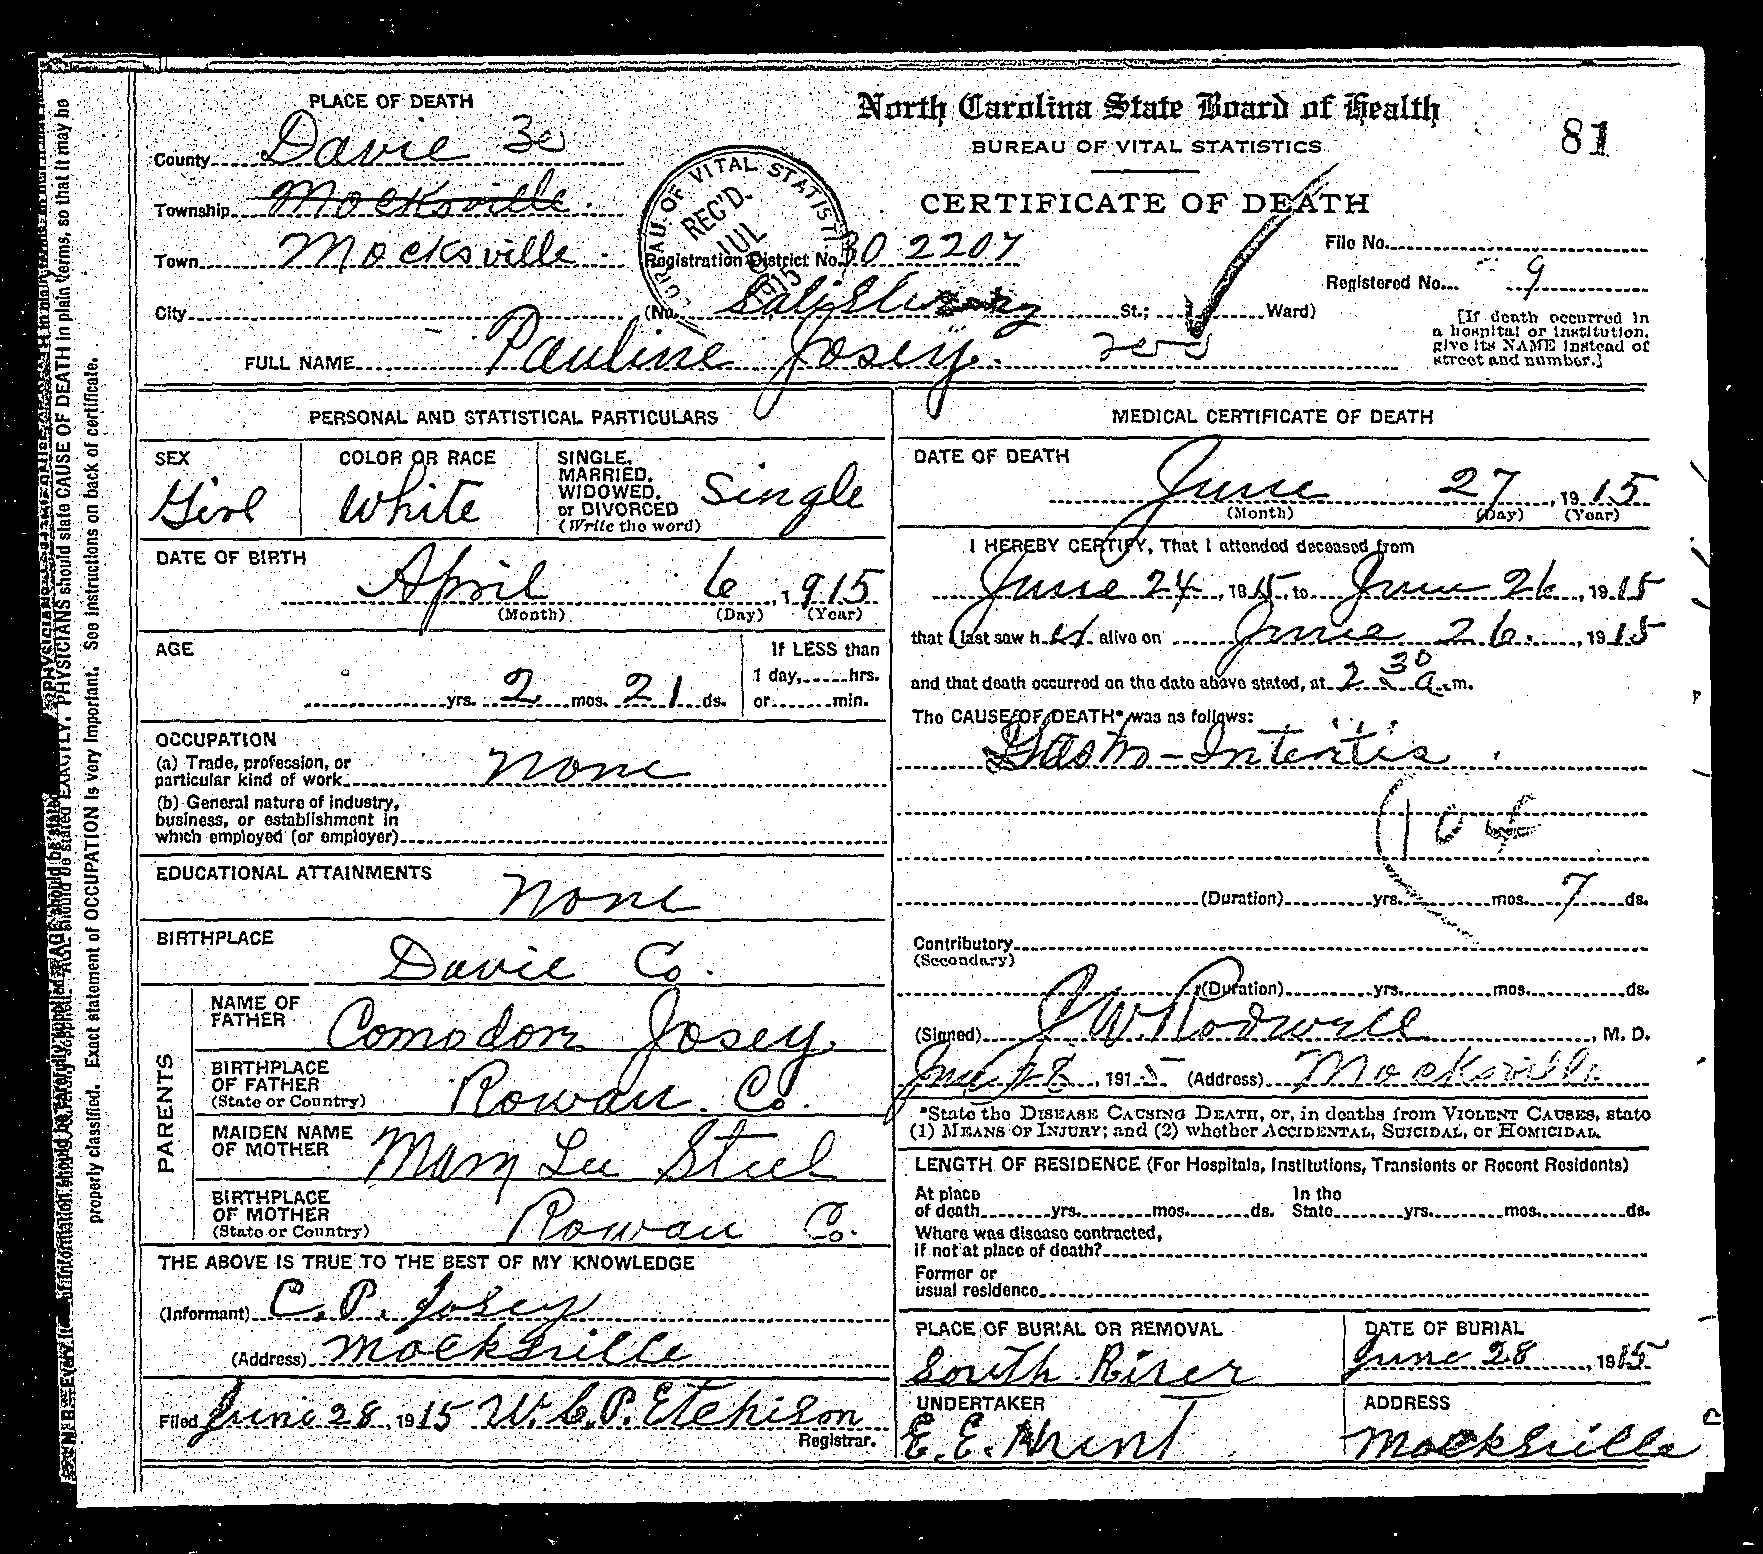 PLACE OF DEATH
County Davie 30
Township Mocksville
Town Mocksville
City
North Carolina State Board of Health
BUREAU OF VITAL STATISTICS
CERTIFICATE OF DEATH
81
BUREAU OF VITAL STATISTI
REC'D.
JUL
1915
Registration District No. 30 2207
(No. Salisbury St.; Ward)
File No.
Registered No. 9
[If death occurred in
a hospital or institution,
give its NAME instead of
street and number.]
FULL NAME Pauline Josey.
PERSONAL AND STATISTICAL PARTICULARS
SEX
Girl
COLOR OR RACE
White
SINGLE,
MARRIED,
WIDOWED,
or DIVORCED
(Write the word)
Single
DATE OF BIRTH
April 6, 1915
(Month) (Day) (Year)
AGE
yrs. 2 mos. 21 ds.
If LESS than
1 day, hrs.
or min.
OCCUPATION
(a) Trade, profession, or
particular kind of work None
(b) General nature of industry,
business, or establishment in
which employed (or employer)
EDUCATIONAL ATTAINMENTS
None
BIRTHPLACE
Davie Co.
PARENTS
NAME OF
FATHER
Comodore Josey
BIRTHPLACE
OF FATHER
(State or Country)
Rowan Co.
MAIDEN NAME
OF MOTHER
Mary Lee Steel
BIRTHPLACE
OF MOTHER
(State or Country)
Rowan Co.
THE ABOVE IS TRUE TO THE BEST OF MY KNOWLEDGE
(Informant) C. P. Josey
(Address) Mocksville
Filed June 28, 1915 W. C. P. Etchison
Registrar.
MEDICAL CERTIFICATE OF DEATH
DATE OF DEATH
June 27, 1915
(Month) (Day) (Year)
I HEREBY CERTIFY, That I attended deceased from
June 24, 1915, to June 26, 1915
that I last saw her alive on June 26., 1915
and that death occurred on the date above stated, at 2 30 a.m.
The CAUSE OF DEATH* was as follows:
Gastro-Intertis
104
(Duration) yrs. mos. 7 ds.
Contributory
(Secondary)
(Duration) yrs. mos. ds.
(Signed) Rodwell, M. D.
June 28, 1915 (Address) Mocksville
*State the DISEASE CAUSING DEATH, or, in deaths from VIOLENT CAUSES, state
(1) MEANS OF INJURY; and (2) whether ACCIDENTAL, SUICIDAL, or HOMICIDAL.
LENGTH OF RESIDENCE (For Hospitals, Institutions, Transients or Recent Residents)
At place
of death yrs. mos. ds.
In the
State yrs. mos. ds.
Where was disease contracted,
If not at place of death?
Former or
usual residence
PLACE OF BURIAL OR REMOVAL
South River
DATE OF BURIAL
June 28, 1915
UNDERTAKER
E. E. Hrunt
ADDRESS
Mocksville
PHYSICIANS should state CAUSE OF DEATH in plain terms, so that it may be
properly classified. Exact statement of OCCUPATION is very important. See instructions on back of certificate.